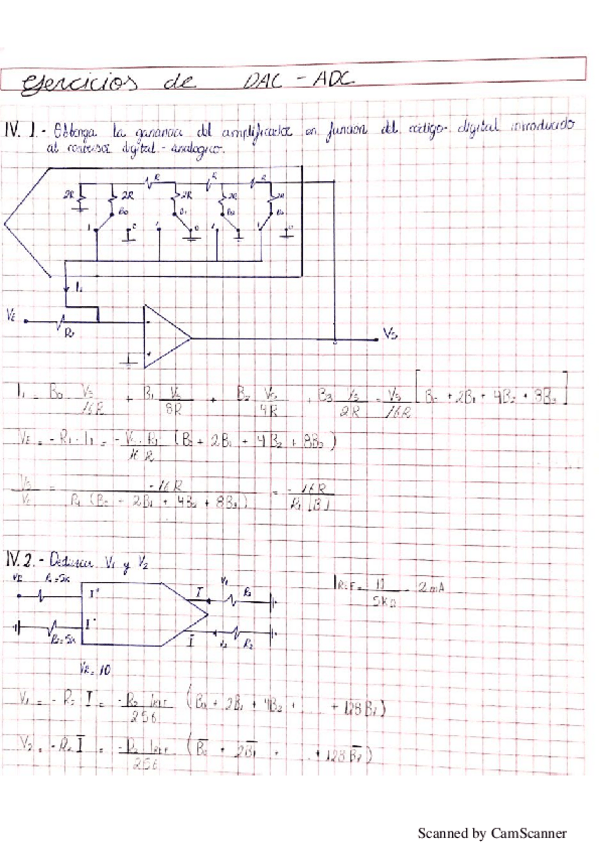 Ejercicios de DAC - ADC
IV. 1.- Obtenga la ganancia del amplificador en funcion del codigo digital introducido
al digital - analogico.
R R R
2R 2R 2R 2R 2R
B0 B1 B2
I1
VE R1 - VS
I1 = B0 VS/16R + B1 VS/8R + B2 VS/4R + B3 VS/2R = VS/16R [B0 + 2B1 + 4B2 + 8B3]
VE = - R1 · I1 = - VS R1/16R (B0 + 2B1 + 4B2 + 8B3)
VS/VE = -16R / R1 (B0 - 2B1 + 4B2 + 8B3) = - 16R / R1 [B]
IV. 2.- V1 y V2
R1=5k I+ I V1 R2
R2=5k I- I V2 R2
VR=10
IREF = / 5KΩ = 2mA
V1 = - R2 I = - R2 IREF/256 (B0 + 2B1 + 4B2 + ... + 128B7)
V2 = - R2 I = - R2 IREF/256 (B0 + 2B1 + ... + 128B7)
Scanned by CamScanner